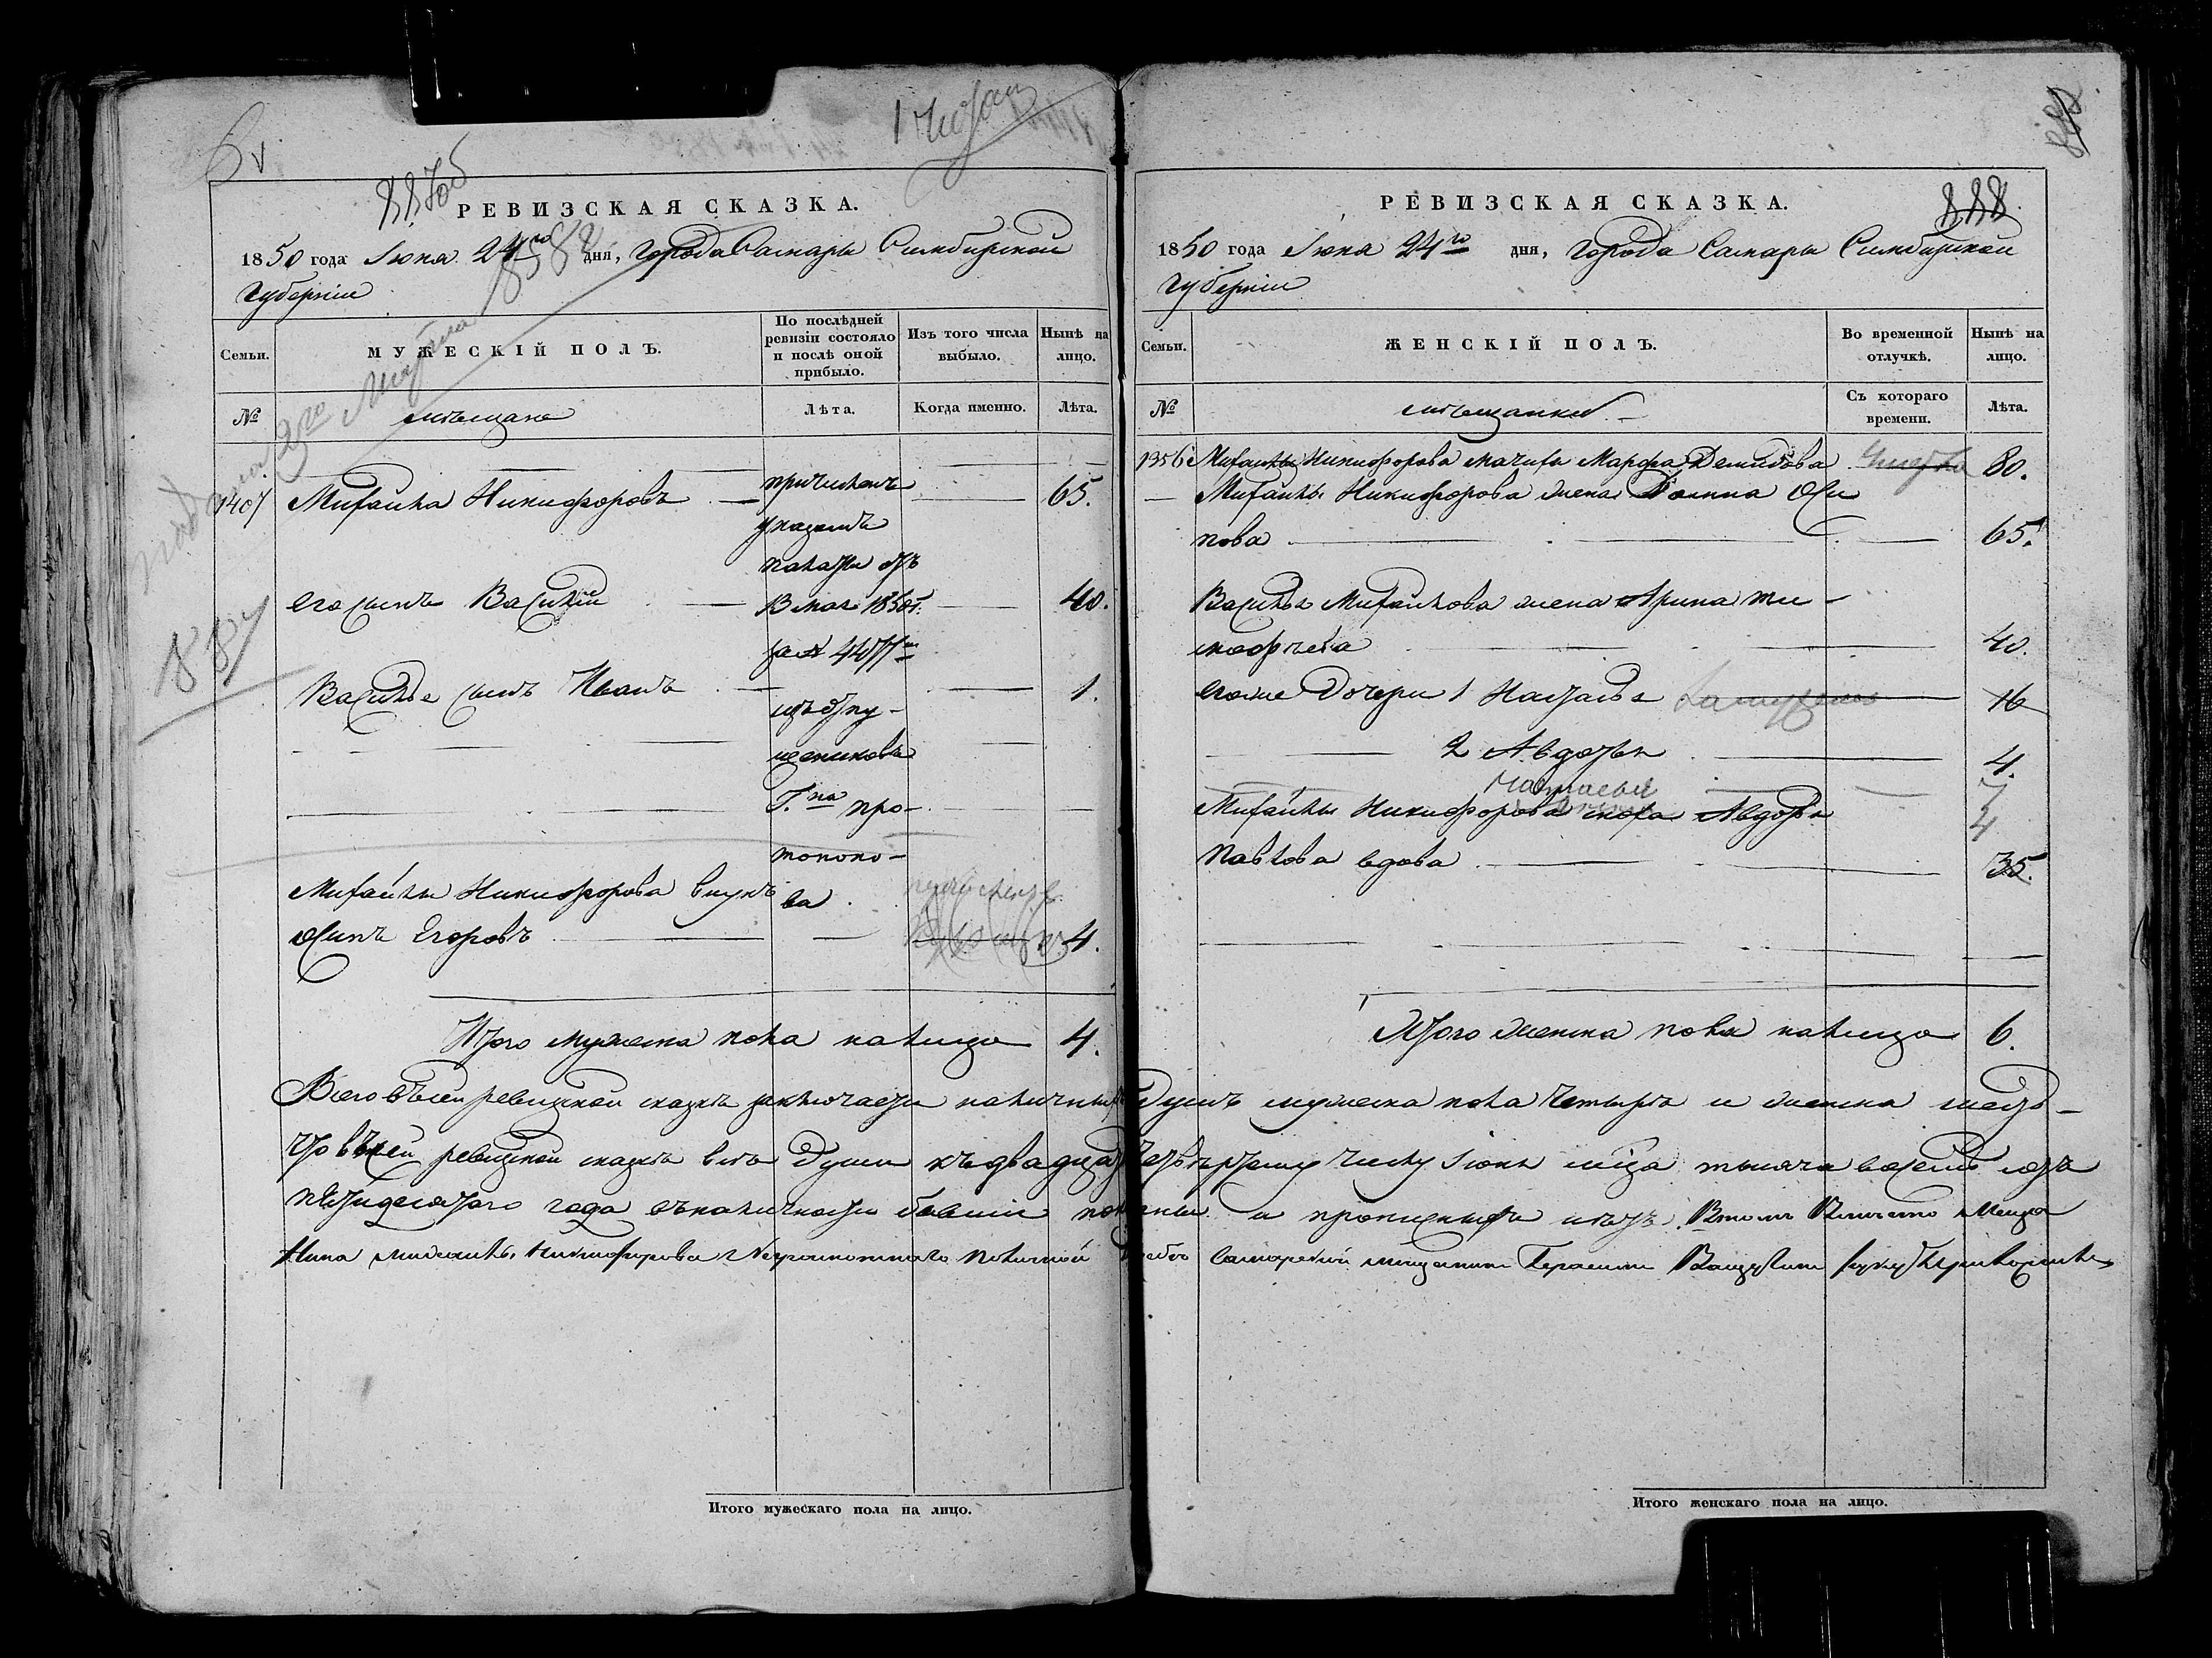 887об
РЕВИЗСКАЯ СКАЗКА.
1850 года Іюня 24го дня, города Самары Симбирской
губерніи
Семьи.
МУЖЕСКІЙ ПОЛЪ.
По послѣдней ревизіи состояло и послѣ оной прибыло.
Изъ того числа выбыло.
Нынѣ на лицо.
№
мѣщане
Лѣта.
Когда именно.
Лѣта.
1407 Михайла Никифоровъ 65.
причисленъ
указомъ
палаты отъ
его сынъ Василій 13 мая 1850г. 40.
за №
Василья сынъ Иванъ 1.
изъ отпу-
щенниковъ
Г.на Про-
топопо-
ва
Михайлы Никифорова внукъ
Осипъ Егоровъ 4.
Итого мужеска пола налицо 4.
Итого мужескаго пола на лицо.
888
РЕВИЗСКАЯ СКАЗКА.
1850 года Іюня 24го дня, города Самары Симбирской
губерніи
Семьи.
ЖЕНСКІЙ ПОЛЪ.
Во временной отлучкѣ.
Нынѣ на лицо.
№
мѣщанки
Съ котораго времени.
Лѣта.
1356 Михайлы Никифорова мачиха Марфа Демидова 80.
Михайлы Никифорова жена Оси
пова 65.
Василья Михайлова жена Арина Ти-
мофѣева 40.
его же дочери 1 Наталья 16
2 Авдотья 4.
Михайлы Никифорова сноха Авдотья
Павлова вдова 35.
Итого женска пола налицо 6.
Всего въ сей ревизской сказкѣ заключается наличныхъ душъ мужеска пола четыре и женска шесть
Что въ сей ревизской сказкѣ всѣ души къ двадцать четвертому числу Іюня мѣсца тысяча восемь сотъ
пятидесятаго года въ наличности бывшіе показаны и прописныхъ нѣтъ. Въ томъ вмѣсто мѣща
нина Михайлы Никифорова неграмотнаго по личной прозбѣ Самарской мещанинъ Герасимъ руку приложилъ
Итого женскаго пола на лицо.